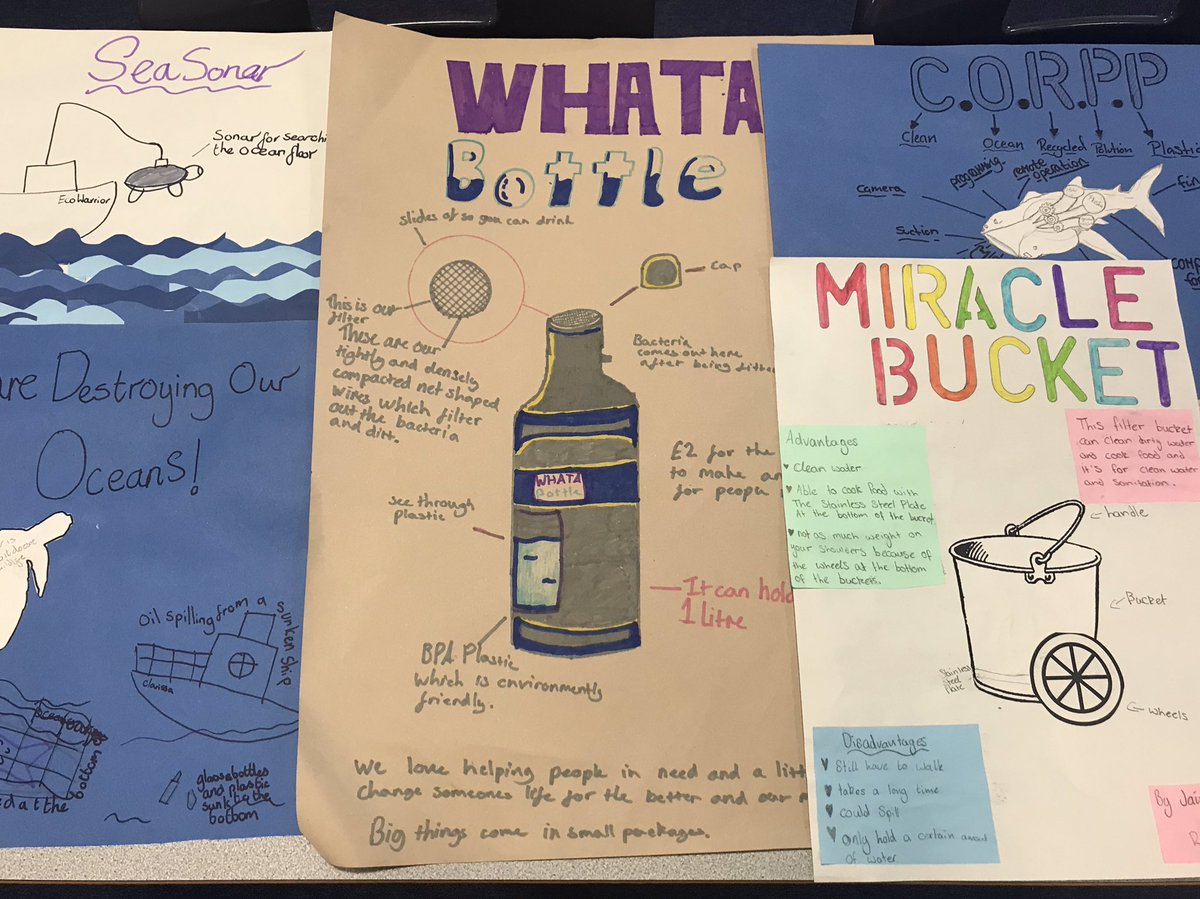 SeaSonar
Sonar for searchi
the ocean floor
EcoWarrior
are Destroying Our
Oceans!
Oil spilling from a
sunken ship
Clarissa
bottom
d at the
glass bottles
and plastic
sunk to the
bottom
WHATA
Bottle
slides of so you can drink
cap
This is our
filter
These are our
tightly and densely
compacted net shaped
wires which filter
out the bacteria
and dirt.
Bacteria
comes out here
after being filte
£2 for the
to make an
for people
WHATA
Bottle
see through
plastic
It can hold
1 litre
BPA Plastic
which is environmently
friendly.
We love helping people in need and a litt
change someones life for the better and our
Big things come in small packages.
C.O.R.P.P
Clean
Ocean
Recycled
Polution
Plastic
camera
programing
remote
operation
fin
suction
MIRACLE
BUCKET
Advantages
Clean water
Able to cook food with
The Stainless Steel Plate
At the bottom of the bucket
not as much weight on
your shoulders because of
the wheels at the bottom
of the buckets.
This filter bucket
can clean dirty water
and cook food and
it's for clean water
and sanitation.
handle
Bucket
Stainless
Steel
Plate
Wheels
Disadvantages
Still have to walk
takes a long time
could spill
only hold a certain amount
of water
By Jai
R